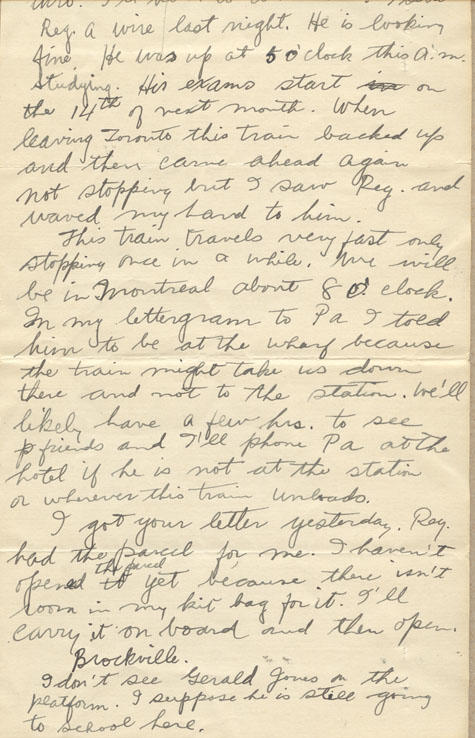 Reg. a wire last night. He is looking
fine. He was up at 5 o'clock this a.m.
studying. His exams start in on
the 14th of next month. When
leaving Toronto this train backed up
and then came ahead again
not stopping but I saw Reg. and
waved my hand to him.
This train travels very fast only
stopping once in a while. We will
be in Montreal about 8 o'clock.
In my lettergram to Pa I told
him to be at the wharf because
the train might take us down
there and not to the station. We'll
likely have a few hrs. to see
friends and I'll phone Pa at the
hotel if he is not at the station
or wherever this train unloads.
I got your letter yesterday. Reg.
had the parcel for me. I haven't
opened it the parcel yet because there isn't
room in my kit bag for it. I'll
carry it on board and then open.
Brockville.
I don't see Gerald Jones on the
platform. I suppose he is still going
to school here.